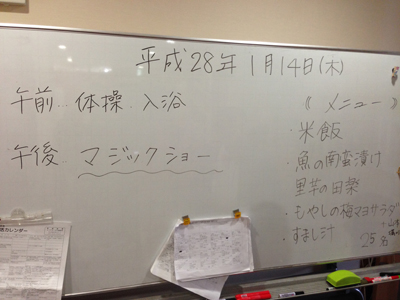 平成28年1月14日(木)
午前…体操、入浴
午後…マジックショー
《メニュー》
・米飯
・魚の南蛮漬け
里芋の田楽
・もやしの梅マヨサラダ
・すまし汁
25名
カレンダー